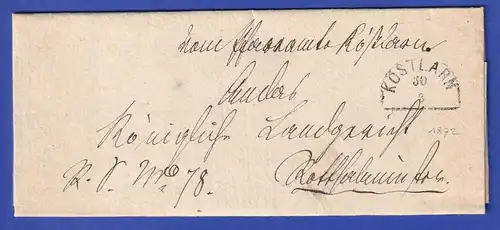 vom Pfarramte Köstlarn
KÖSTLARN
30
3
An das
Königliche Landgericht
1872
R. S. No 78.
Rotthalmünster